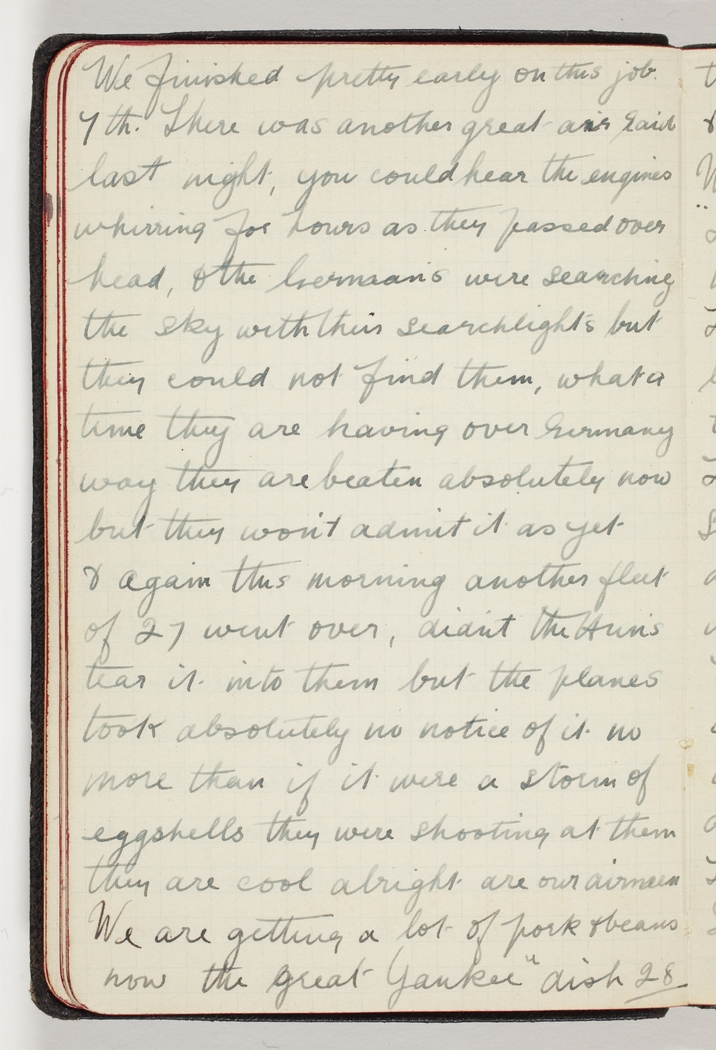 We finished pretty early on this job.
7th. There was another great air raid
last night, you could hear the engines
whirring for hours as they passed over
head, & the Germans were searching
the sky with their searchlights but
they could not find them, what a
time they are having over Germany
way they are beaten absolutely now
but they won't admit it as yet
& again this morning another fleet
of 27 went over, didn't the Huns
tear it into them but the planes
took absolutely no notice of it no
more than if it were a storm of
eggshells they were shooting at them
they are cool alright are our airmen
We are getting a lot of pork & beans
now the great Yankee" dish 28